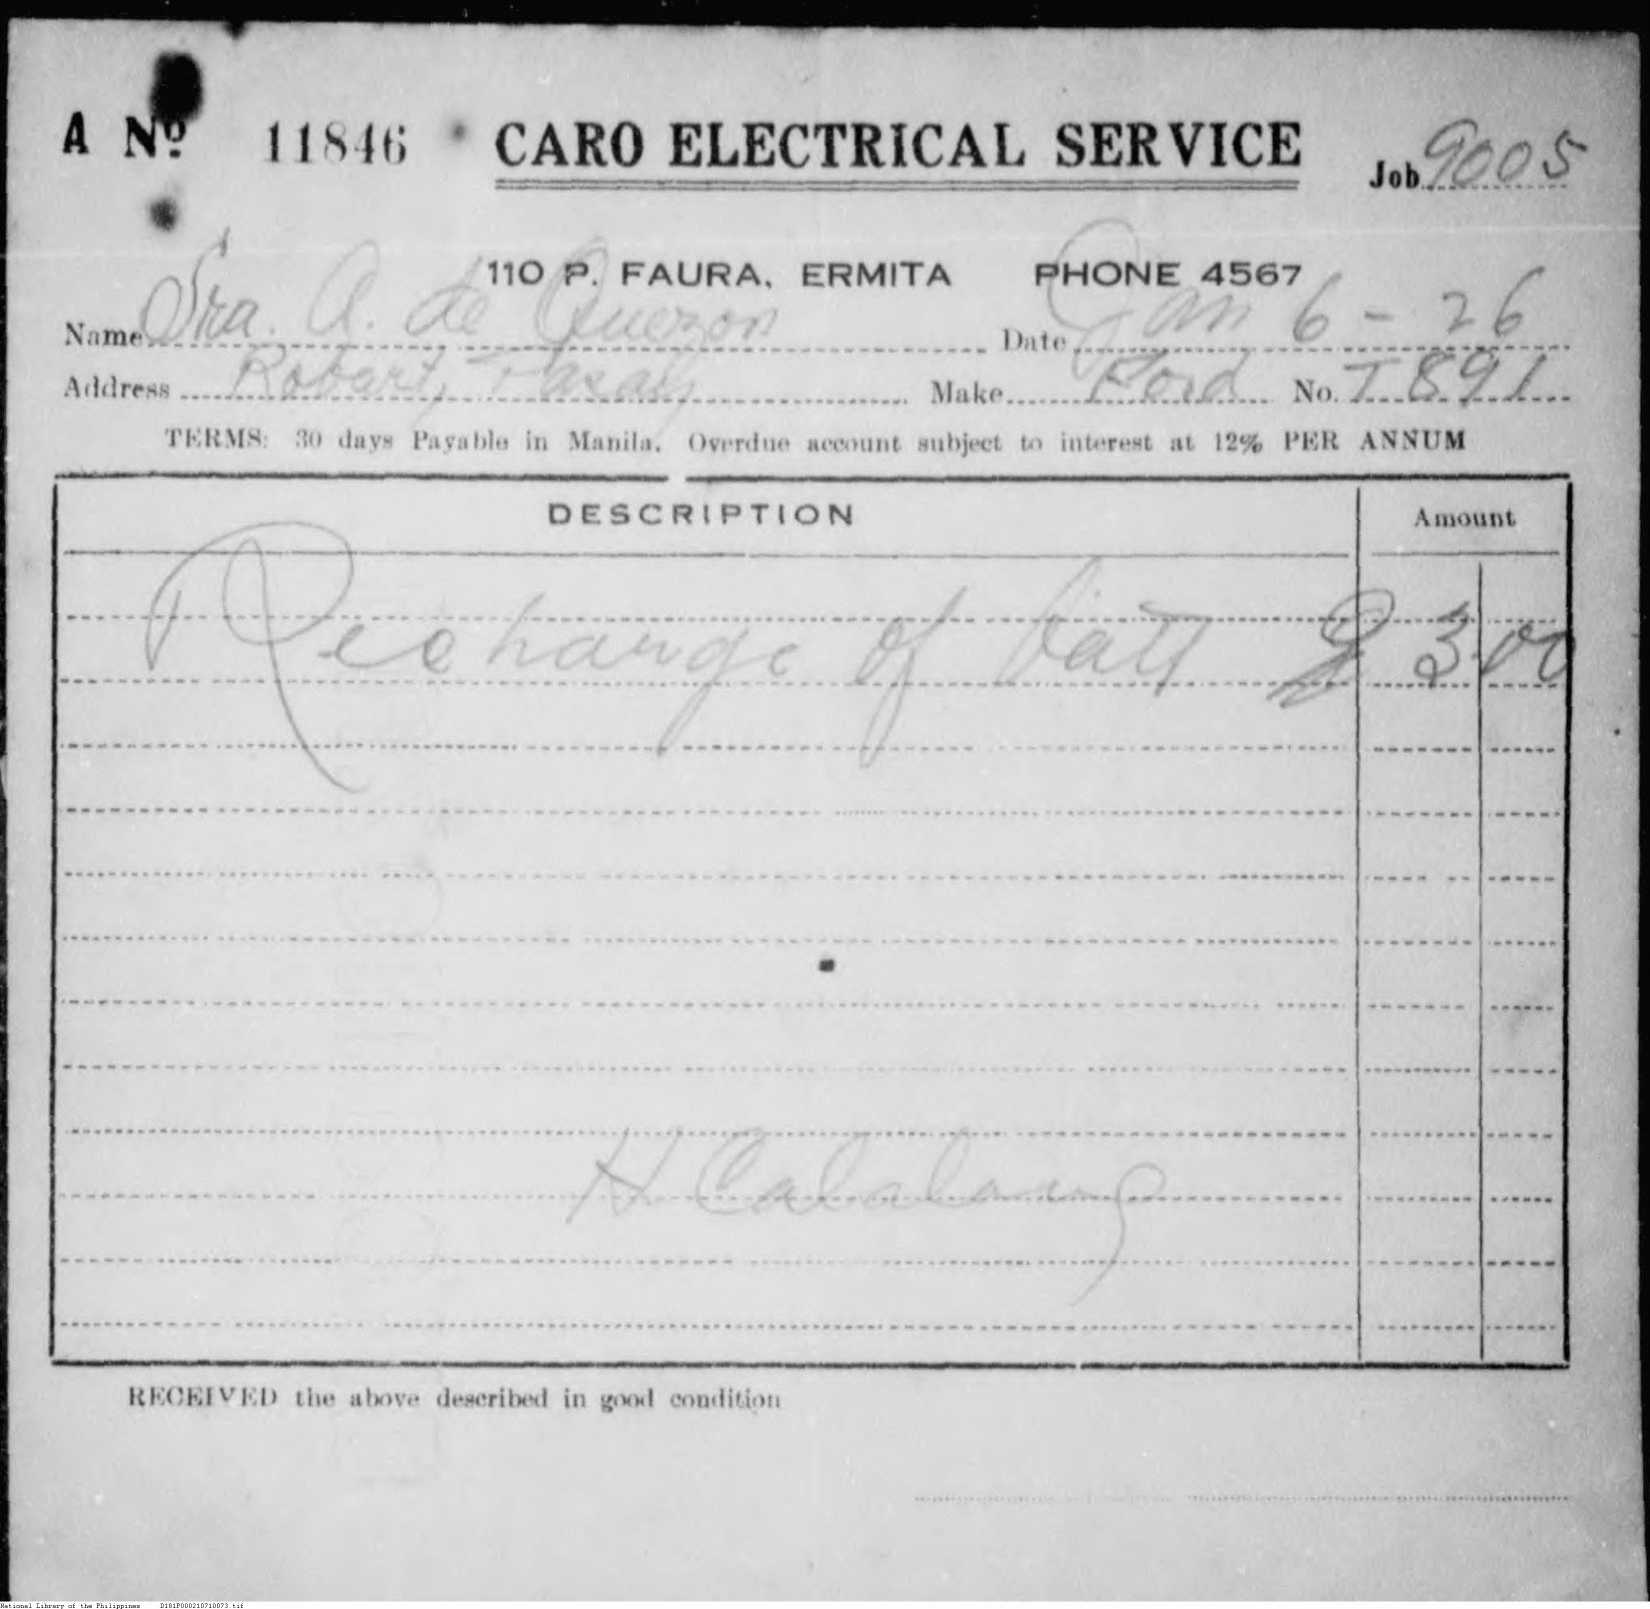 A Nº 11846 CARO ELECTRICAL SERVICE Job 9005
110 P. FAURA, ERMITA PHONE 4567
Name Sra. A. de Quezon Date Jan 6 - 26
Address Roberts, Pasay Make Ford No. T-891
TERMS: 30 days Payable in Manila. Overdue account subject to interest at 12% PER ANNUM
DESCRIPTION Amount
Recharge of batt ₱ 3 00
H Calalang
RECEIVED the above described in good condition
National Library of the Philippines D101P000210710073.tif